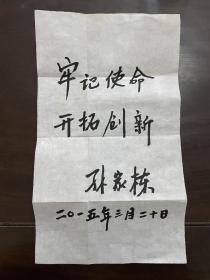 牢记使命
开拓创新
孙家栋
二〇一五年三月二十日